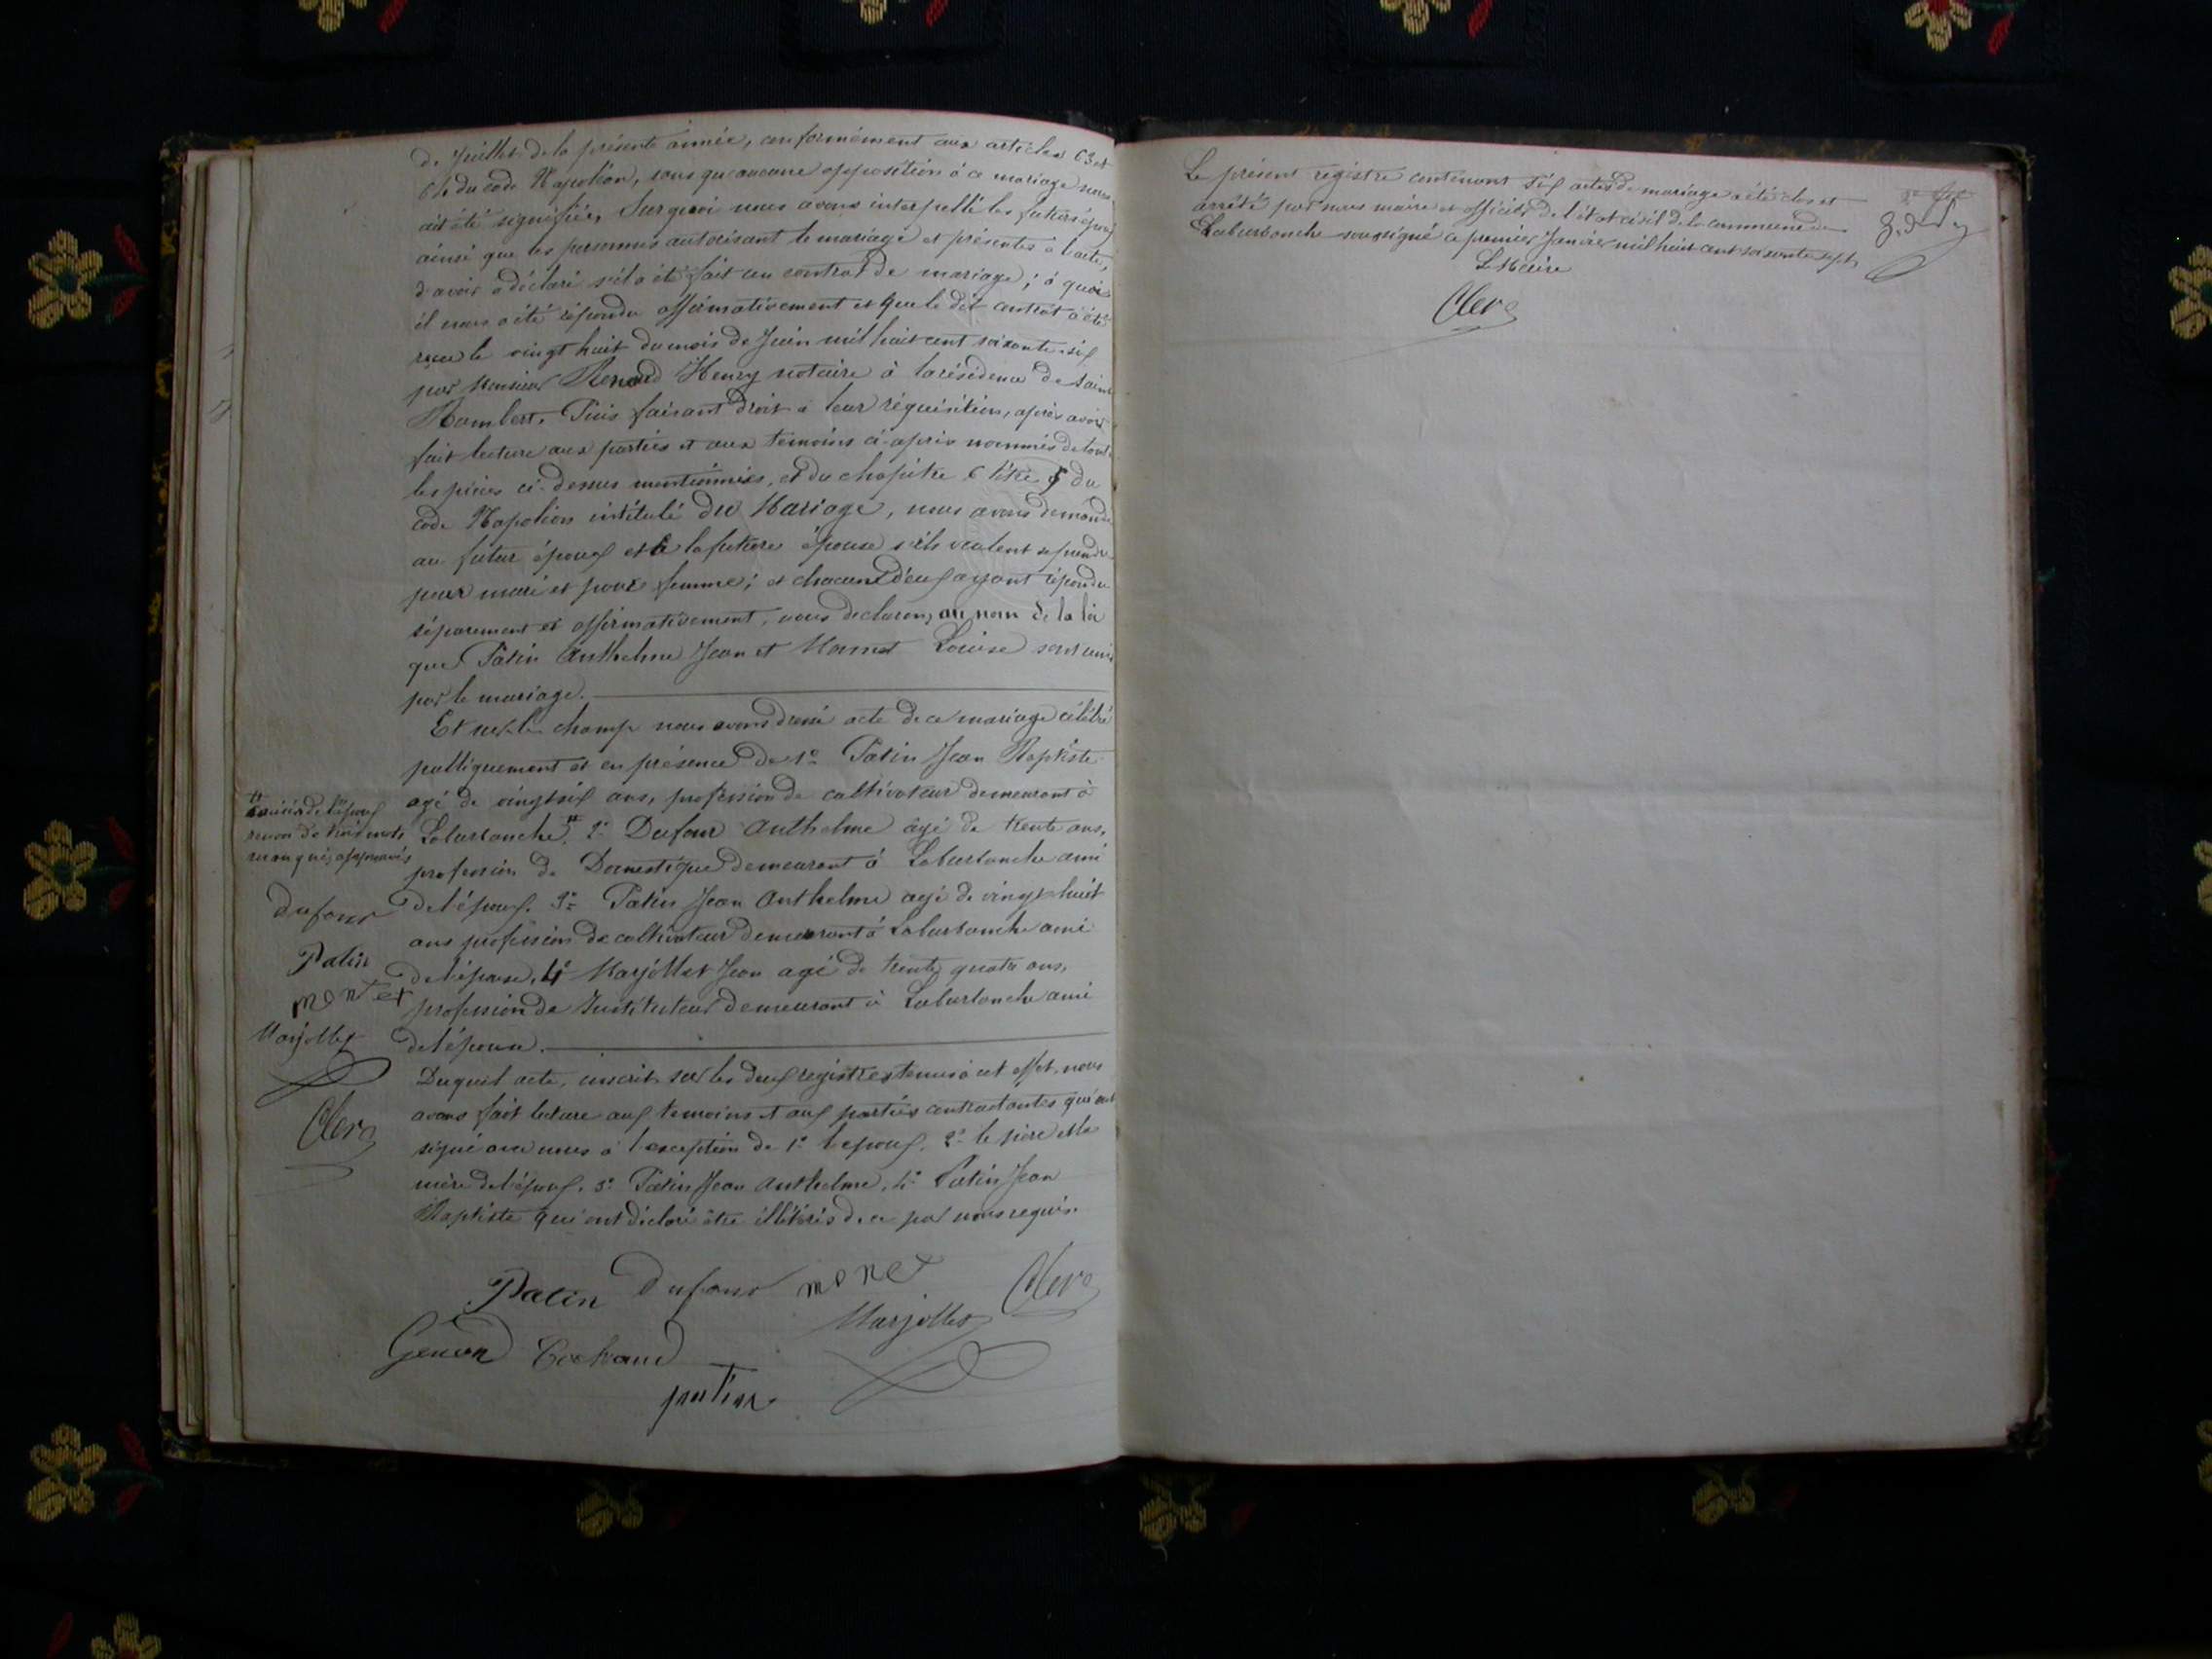 de juillet de la présente année, conformément aux articles 63 et
64 du code Napoléon, sans qu'aucune opposition à ce mariage nous
ait été signifiée, Sur quoi nous avons interpellé les futurs époux
ainsi que les personnes autorisant le mariage et présentes à l'acte,
d'avoir à déclaré s'il a été fait un contrat de mariage; à quoi
il nous a été répondu affirmativement et que le dit contrat a été
recu le vingt huit du mois de Juin mil huit cent soixante six
par Monsieur Renard Henry notaire à la résidence de Saint
Rambert. Puis faisant droit à leur réquisition, après avoir
fait lecture aux parties et aux témoins ci-après nommés de toutes
les pièces ci-dessus mentionnées, et du chapitre 6 titre 5 du
code Napoléon intitulé du Mariage, nous avons demandé
au futur époux et à la future épouse s'ils veulent se prendre
pour mari et pour femme; et chacun d'eux ayant répondu
séparement et affirmativement, nous declarons au nom de la loi
que Patin Anthelme Jean et Monnet Louise sont unis
par le mariage.
Et sur le champ nous avons dressé acte de ce mariage célébré
publiquement et en présence de 1° Patin Jean Baptiste
agé de vingt six ans, profession de cultivateur demeurant à
Labursonche # 2° Dufour Anthelme âgé de trente ans,
profession de Domestique demeurant à Labursonche ami
de l'époux. 3° Patin Jean Anthelme agé de vingt huit
ans profession de cultivateur demeurant à Labursonche ami
de l'épouse, 4° Marjollet Jean agé de trente quatre ans,
profession de Instituteur demeurant à Labursonche ami
de l'épouse.
Duquel acte, inscrit sur les deux registres tenus à cet effet, nous
avons fait lecture aux temoins et aux parties contractantes qui ont
signé avec nous à l'exception de 1° l'epoux, 2° le père et la
mère de l'époux, 3° Patin Jean Anthelme, 4° Patin Jean
Baptiste qui ont déclaré être illétérés de ce par nous requis.
dufour
Patin
monet
Marjollet
Clerc
Patin Dufour monet Clerc
Marjollet
Genon
patin
Le présent registre contenant six actes de mariage a été clos et
arrêté par nous maire et officier de l'état civil de la commune de
Labursonche soussigné ce premier Janvier mil huit cent soixante sept
Le Maire
Clerc